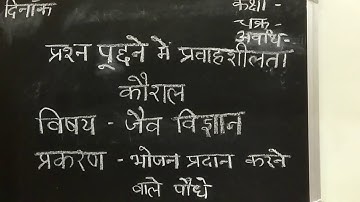 दिनांक
कक्षा -
चक्र -
अवधि -
प्रश्न पूछने में प्रवाहशीलता
कौशल
विषय - जैव विज्ञान
प्रकरण - भोजन प्रदान करने
वाले पौधे